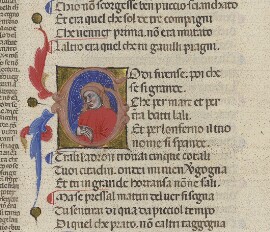 Chio non scorgesse ben puccio sciancato
Et era quel che sol de tre compagni
Che venner prima. non era mutato
Laltro era quel che tu gavilli piagni.
Godi firense. poi che
se si grande.
Che per mare et per
terra batti lali.
Et per lonferno il tuo
nome si spande.
Tra li ladron trovai cinque cotali
Tuoi citadini. onde mi ven vergogna
Et tu in grande horranza non ne sali.
Ma se pressal matin del ver si sogna
Tu sentirai di qua da picciol tempo
Di quel che prato. non caltri tagogna